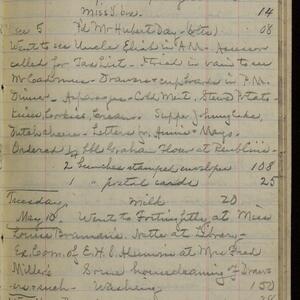 Miss Ive. 14
Pd Mr Hubert Day - 08
Went to see Uncle Elish in A.M. Assessor
called for Tax List - Tried in vain to see
Mr Drawers + cupboards in P.M.
Dinner - Asparagus - Cold Meat, Stewd Potato -
Cookies, Cream. Supper Johnny Cake,
Dutch cheese - Letters fr. Annie + Mays.
Ordered Graham Flour at
2 bunches stamped envelopes 1 08
1 " postal cards 25
Tuesday, Milk 20
May 10. Went to Fortnightly at Miss
Louise Notte at Library -
Ex. Com. of E. H. S. Alumni at Mrs Fred
Miller's Some housecleaning of Draw-
ers - Washing 1 50